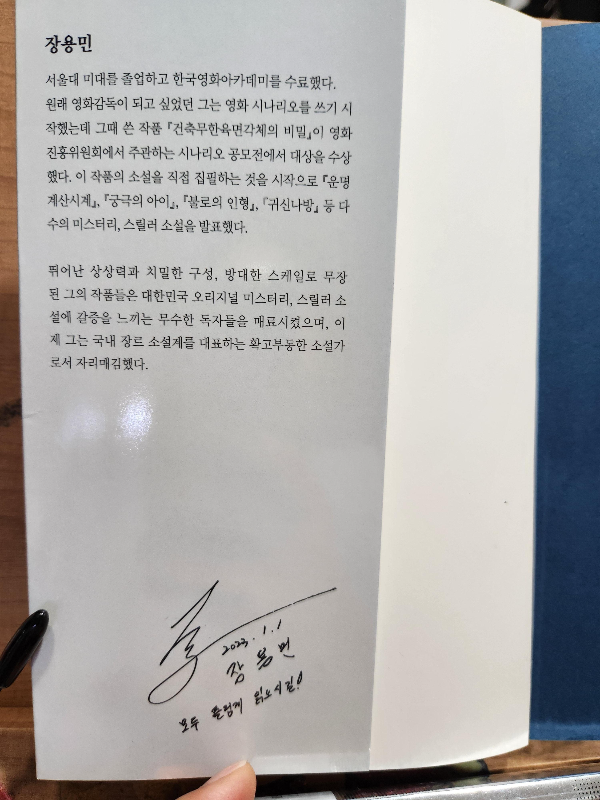 장용민
서울대 미대를 졸업하고 한국영화아카데미를 수료했다.
원래 영화감독이 되고 싶었던 그는 영화 시나리오를 쓰기 시
작했는데 그때 쓴 작품 『건축무한육면각체의 비밀』이 영화
진흥위원회에서 주관하는 시나리오 공모전에서 대상을 수상
했다. 이 작품의 소설을 직접 집필하는 것을 시작으로 『운명
계산시계』, 『궁극의 아이』, 『불로의 인형』, 『귀신나방』 등 다
수의 미스터리, 스릴러 소설을 발표했다.
뛰어난 상상력과 치밀한 구성, 방대한 스케일로 무장
된 그의 작품들은 대한민국 오리지널 미스터리, 스릴러 소
설에 갈증을 느끼는 무수한 독자들을 매료시켰으며, 이
제 그는 국내 장르 소설계를 대표하는 확고부동한 소설가
로서 자리매김했다.
2023. 1. 1
장용민
모두 즐겁게 읽으시길!